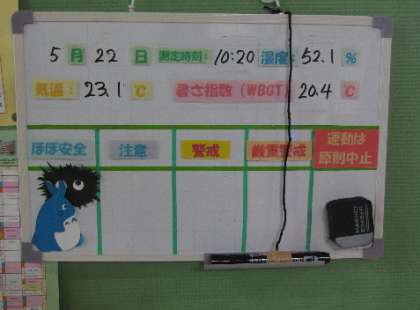 5 月 22 日 測定時刻: 10:20 湿度: 52.1 %
気温: 23.1 ℃ 暑さ指数(WBGT) 20.4 ℃
ほぼ安全 注意 警戒 厳重警戒 運動は
原則中止